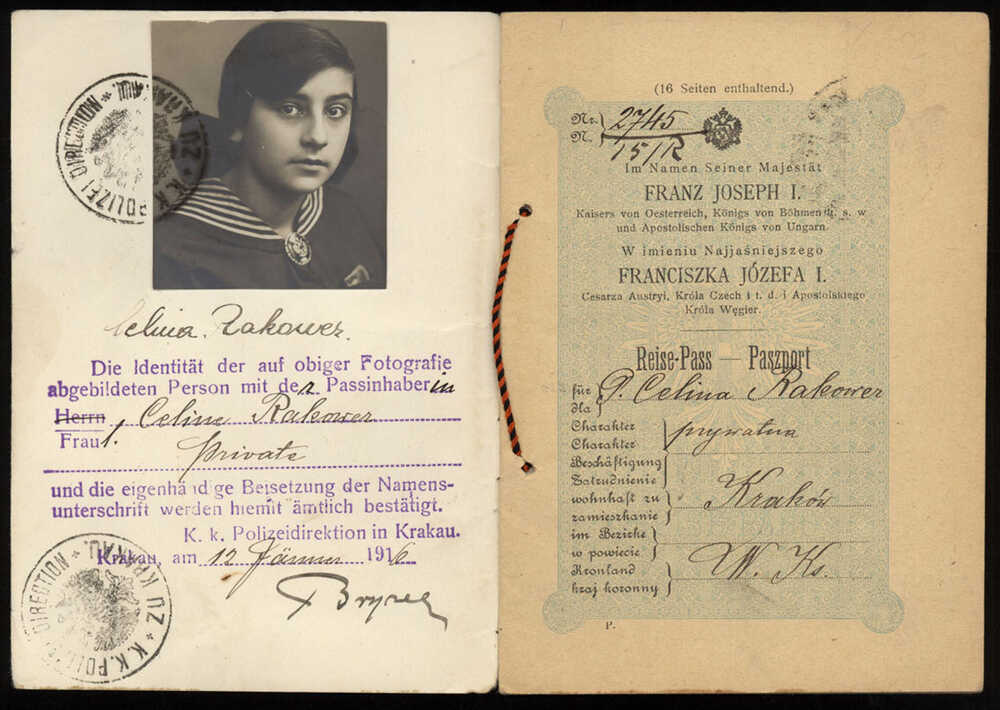 K. K. POLIZEI DIRECTION * ZU KRAKAU. *
Celina Rakower
Die Identität der auf obiger Fotografie
abgebildeten Person mit der Passinhaberin
Herrn
Frau Celina Rakower
Private
und die eigenhändige Beisetzung der Namens-
unterschrift werden hiemit ämtlich bestätigt.
K. k. Polizeidirektion in Krakau.
Krakau, am 12 Jänner 1916
K. K. POLIZEI DIRECTION * ZU KRAKAU. *
(16 Seiten enthaltend.)
Nr. 2745
N. 151/R
Im Namen Seiner Majestät
FRANZ JOSEPH I.
Kaisers von Oesterreich, Königs von Böhmen u. s. w
und Apostolischen Königs von Ungarn.
W imieniu Najjaśniejszego
FRANCISZKA JÓZEFA I.
Cesarza Austryi, Króla Czech i t. d. i Apostolskiego
Króla Węgier.
Reise-Pass — Paszport
für
dla P. Celina Rakower
Charakter
Charakter prywatna
Beschäftigung
Zatrudnienie
wohnhaft zu
zamieszkanie Kraków
im Bezirke
w powiecie
Kronland
kraj koronny W. Ks.
P.